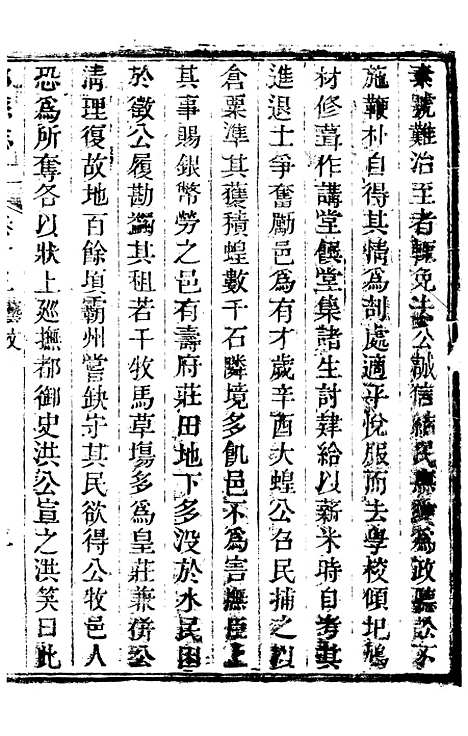 素號難治至者輒免去公誠信結民為政聽訟不
施鞭朴自得其情為剖處適平悅服而去學校傾圮鳩
材修葺作講堂饌堂集諸生討肄給以薪米時自考其
進退士爭奮勵邑為有才歲辛酉大蝗公召民捕之以
倉粟準其獲積蝗數千石隣境多飢邑不為害撫臣上
其事賜銀幣勞之邑有壽府莊田地下多没於水民困
於徵公履勘蠲其租若干牧馬草塲多為皇莊兼併公
清理復故地百餘頃霸州嘗缺守其民欲得公牧邑人
恐為所奪各以狀上廵撫都御史洪公宣之洪笑曰此
藝文